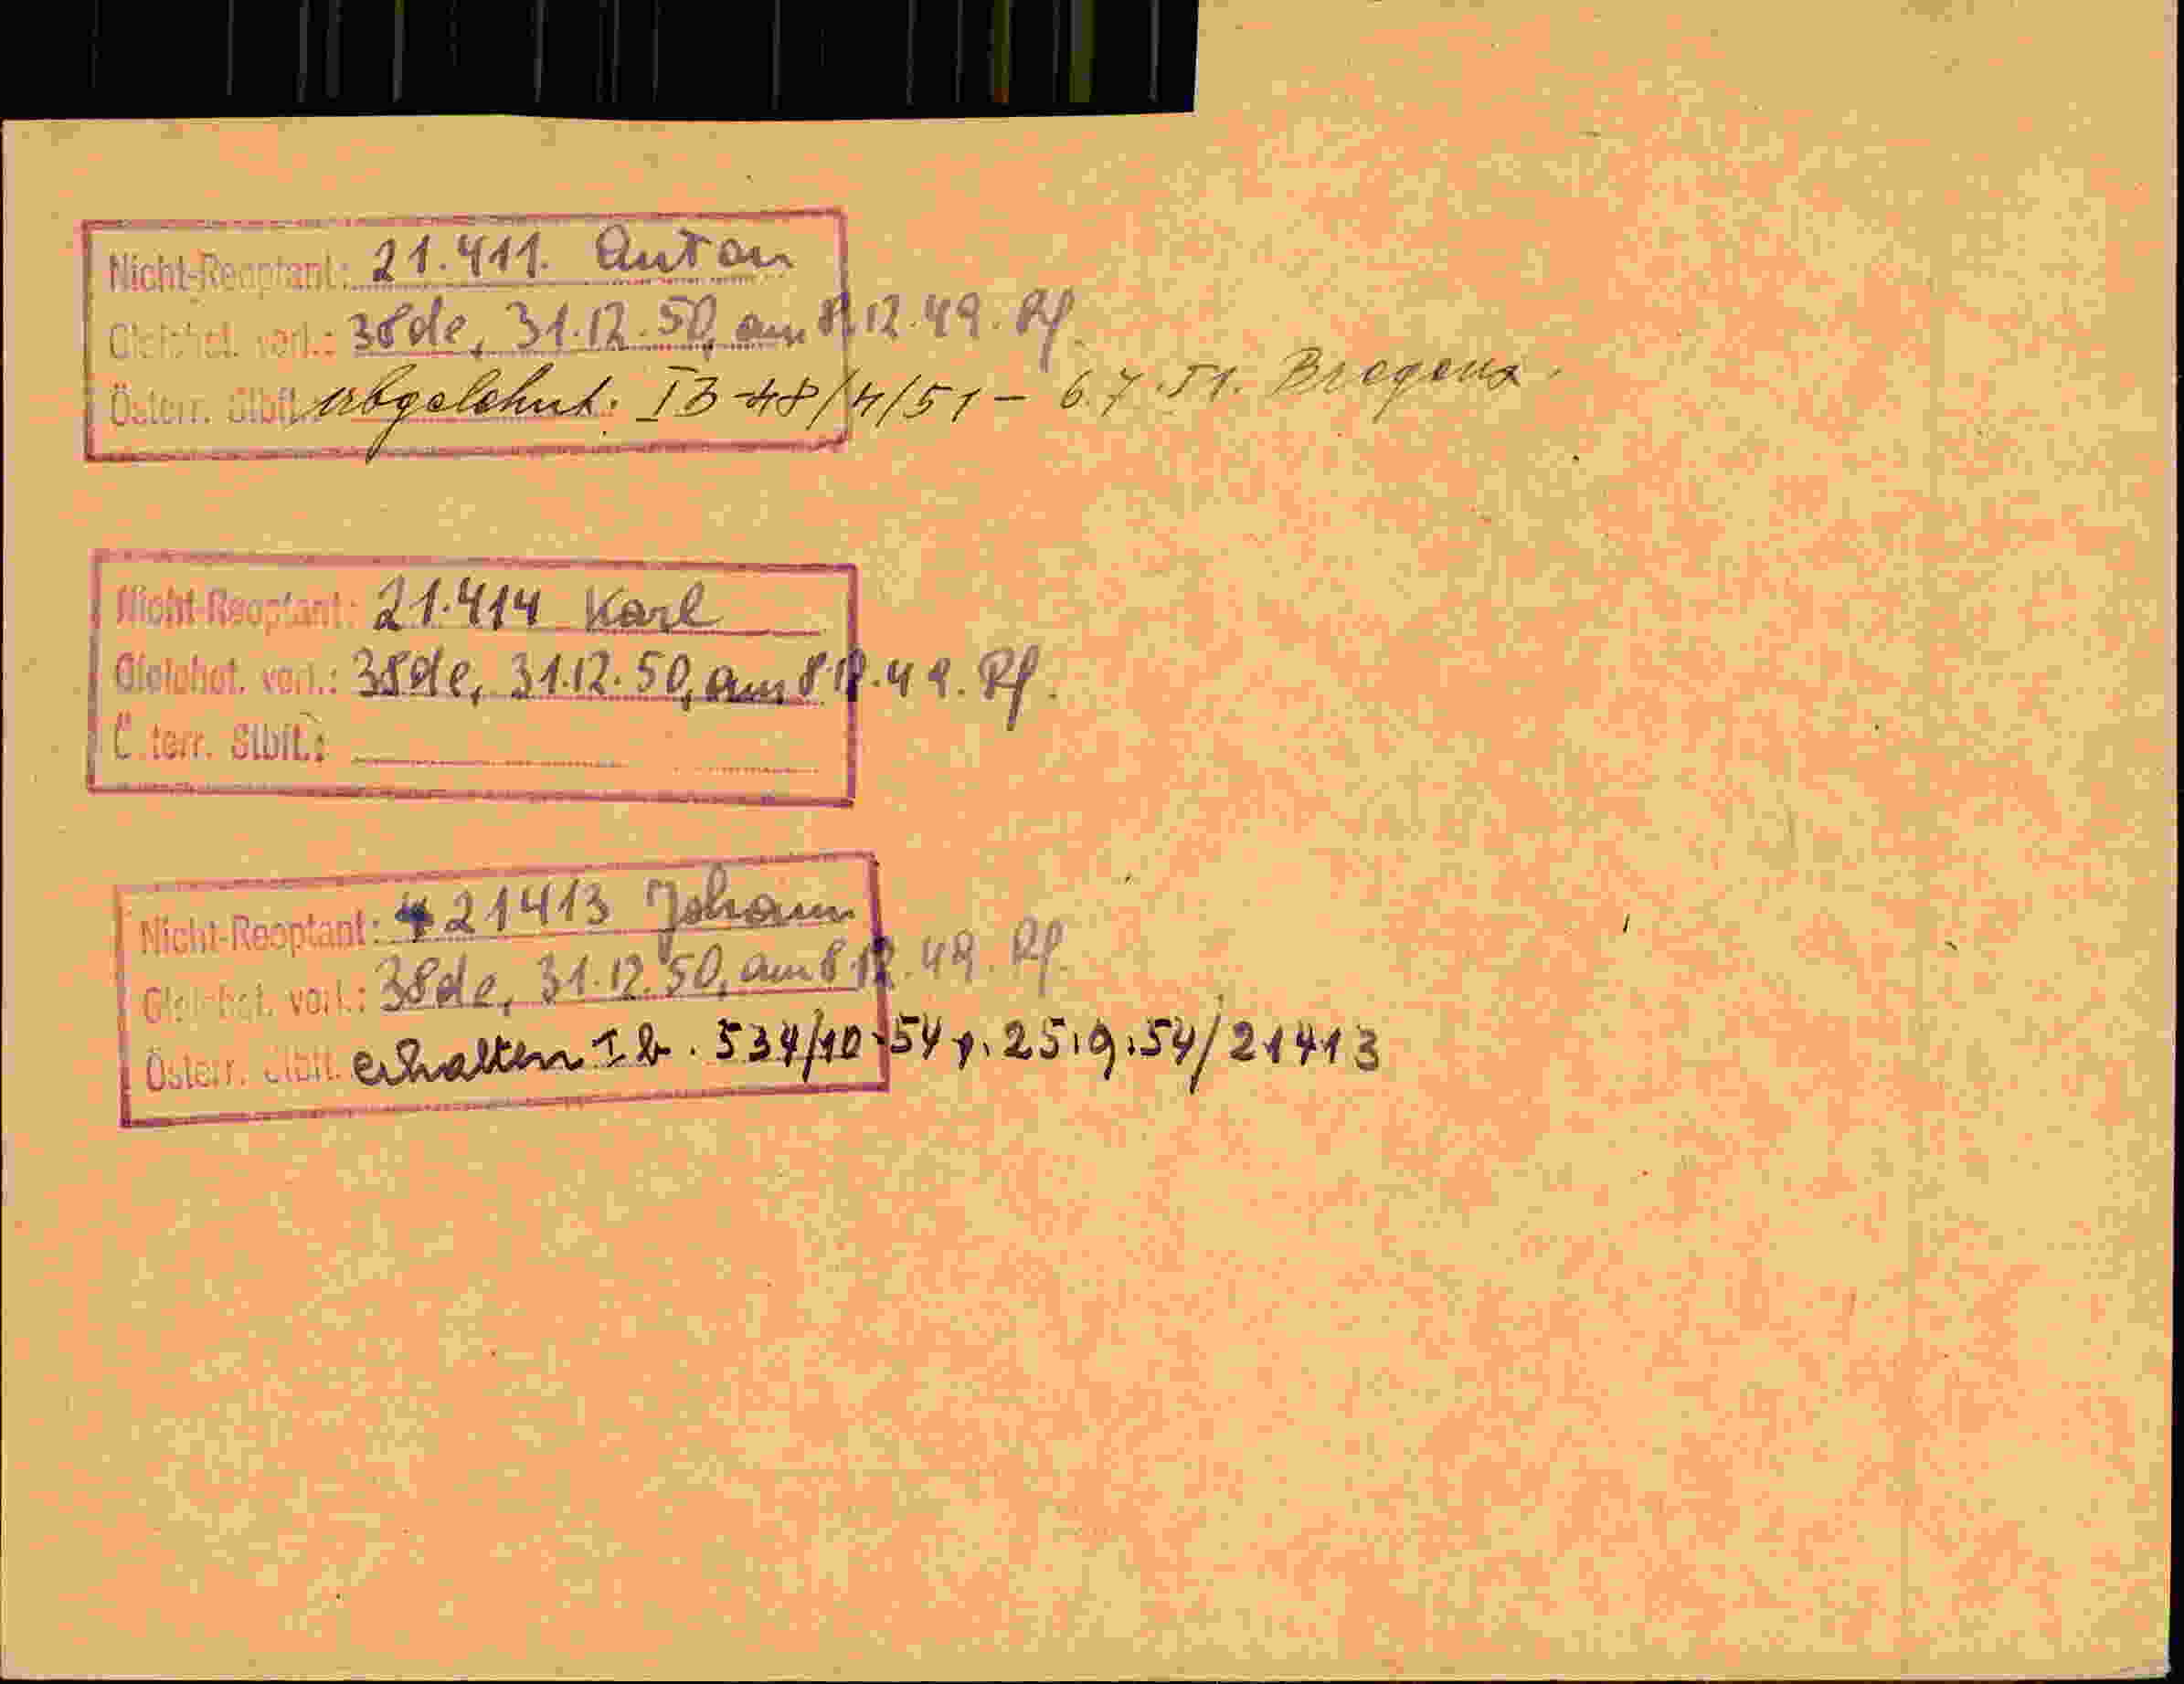 Nicht-Reoptant: 21.411. Anton
Gleichst. verl.: 38de, 31.12.50, am 8.12.49. Rf.
Österr. Stbft. abgelehnt. IB-48/4/51 - 6.7.51. Bregenz.
Nicht-Reoptant: 21.414 Karl
Gleichst. verl.: 38de, 31.12.50, am 8.12.49. Rf.
Österr. Stbft.:
Nicht-Reoptant: 21413 Johann
Gleichst. verl.: 38de, 31.12.50, am 8.12.49. Rf.
Österr. Stbft. erhalten I b. 534/10-54 v. 25.9.54/21413